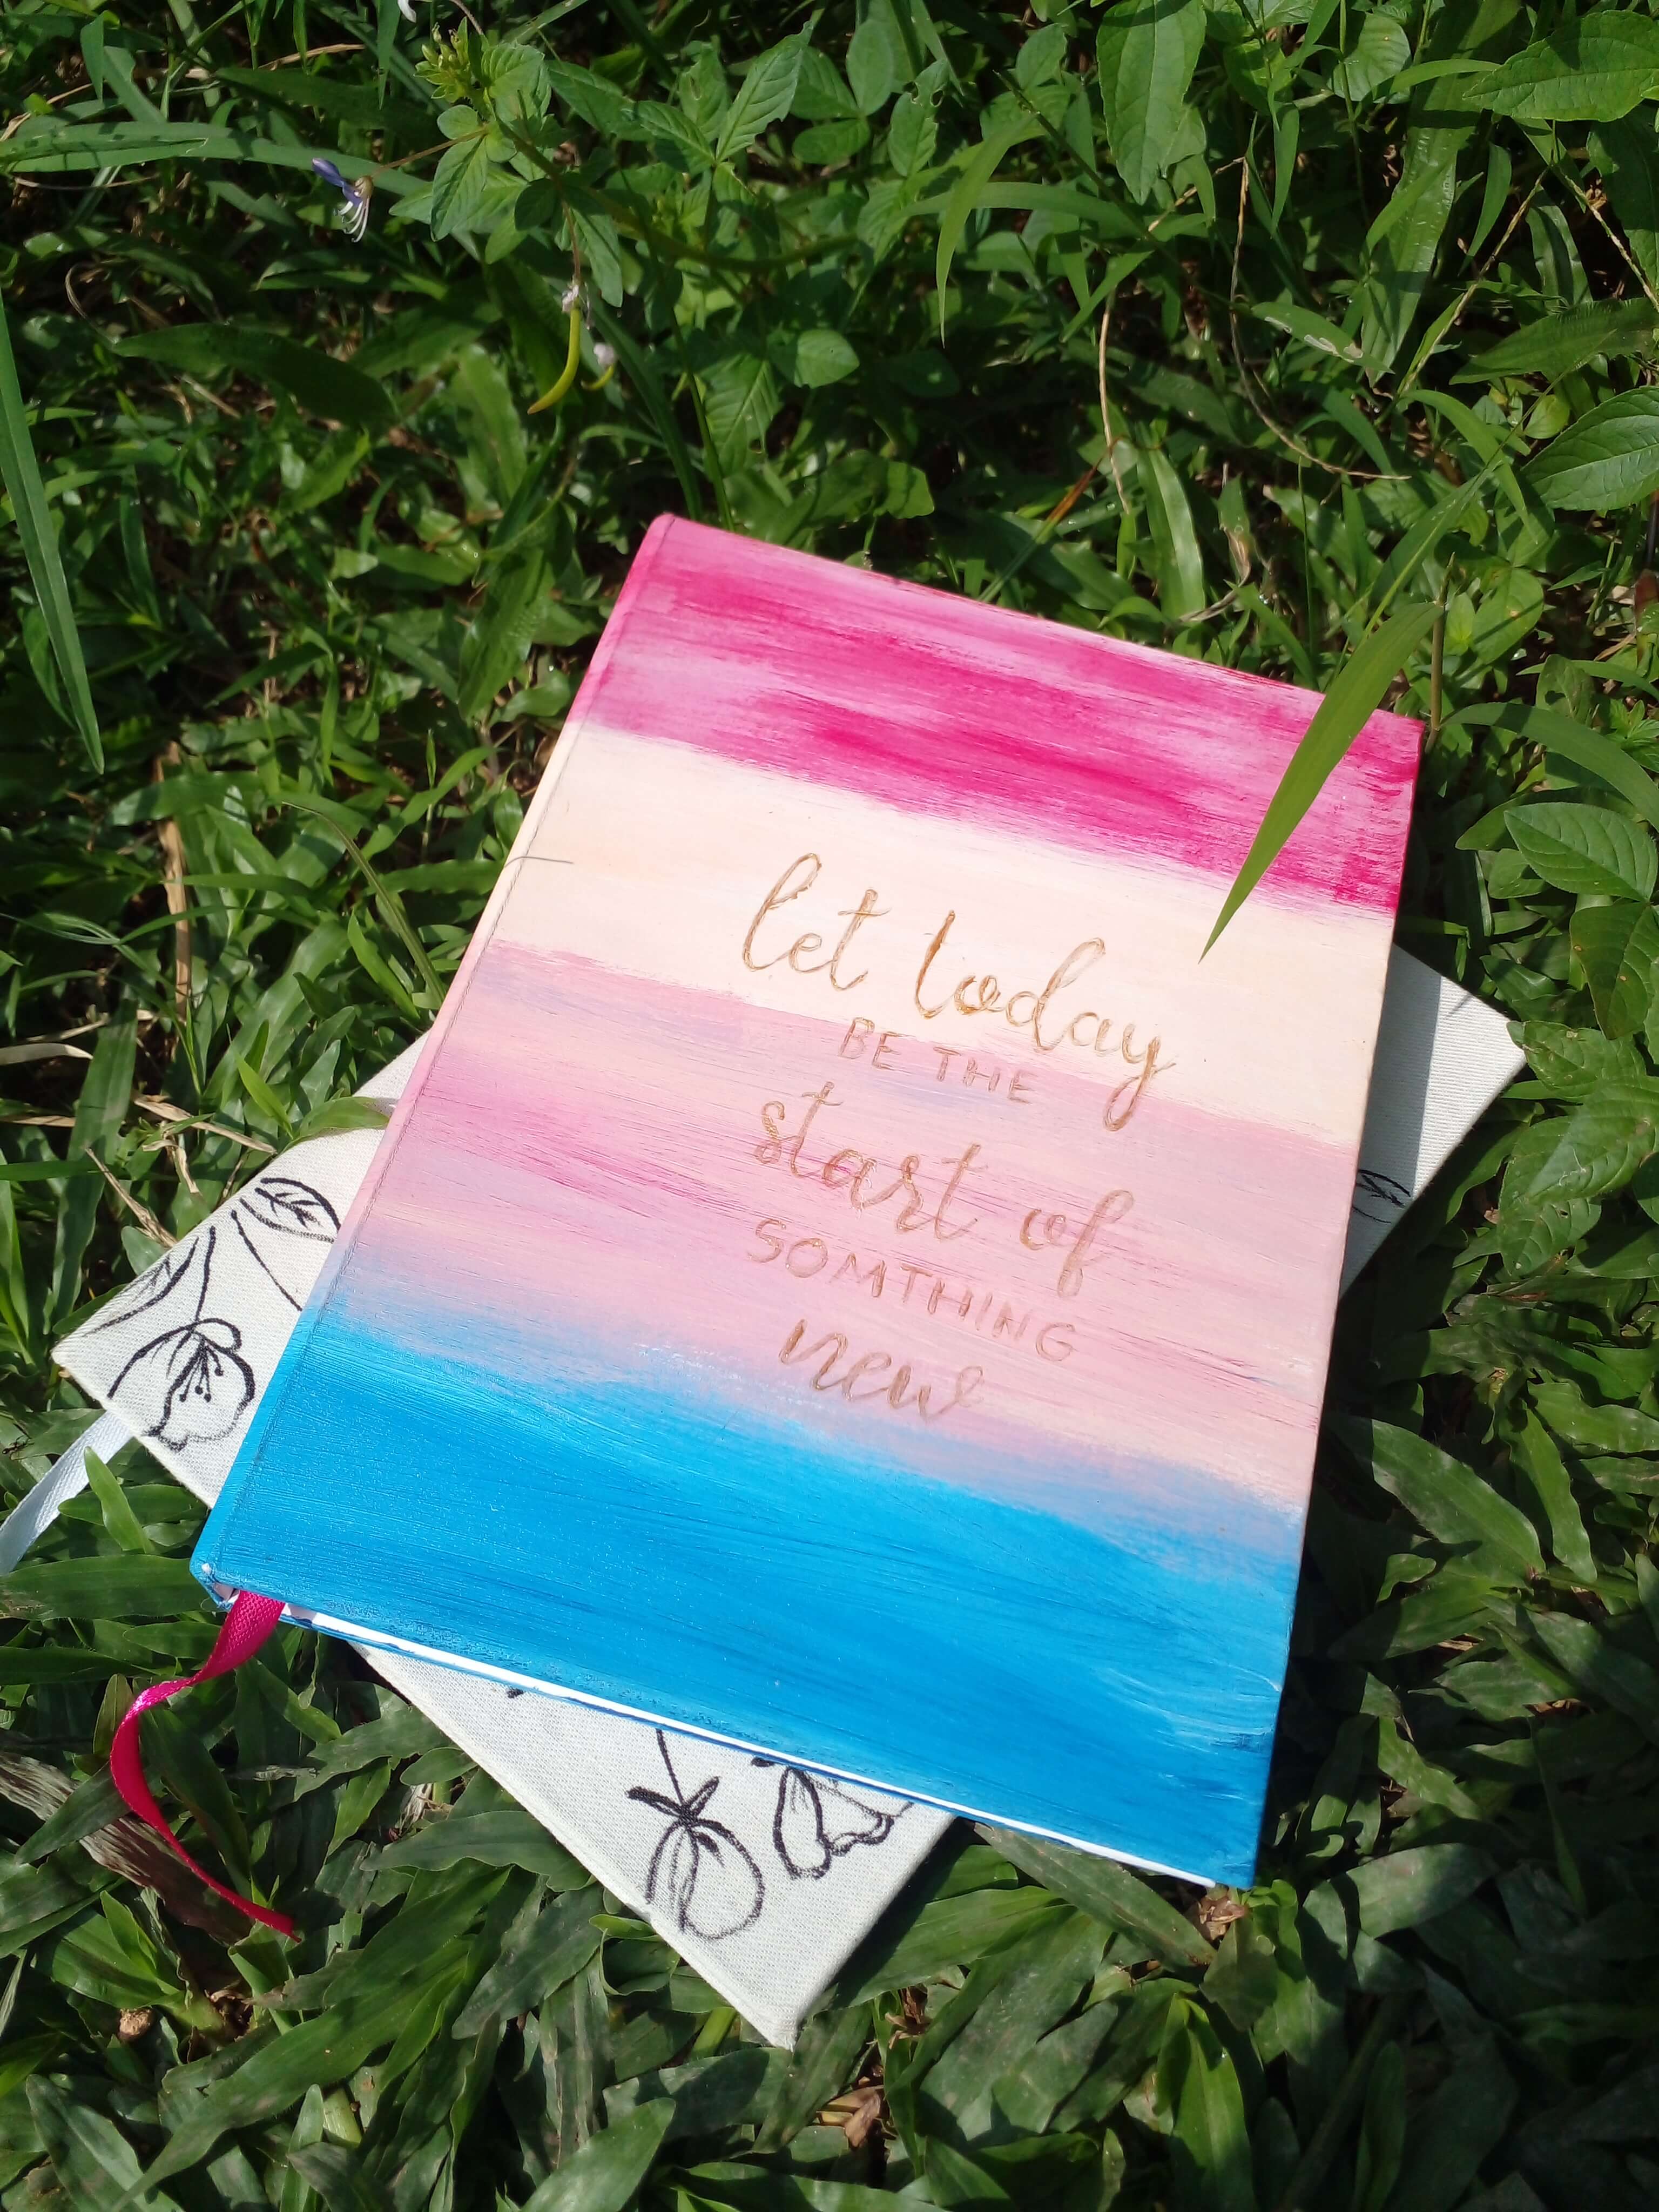 let today
BE THE
start of
SOMTHING
new